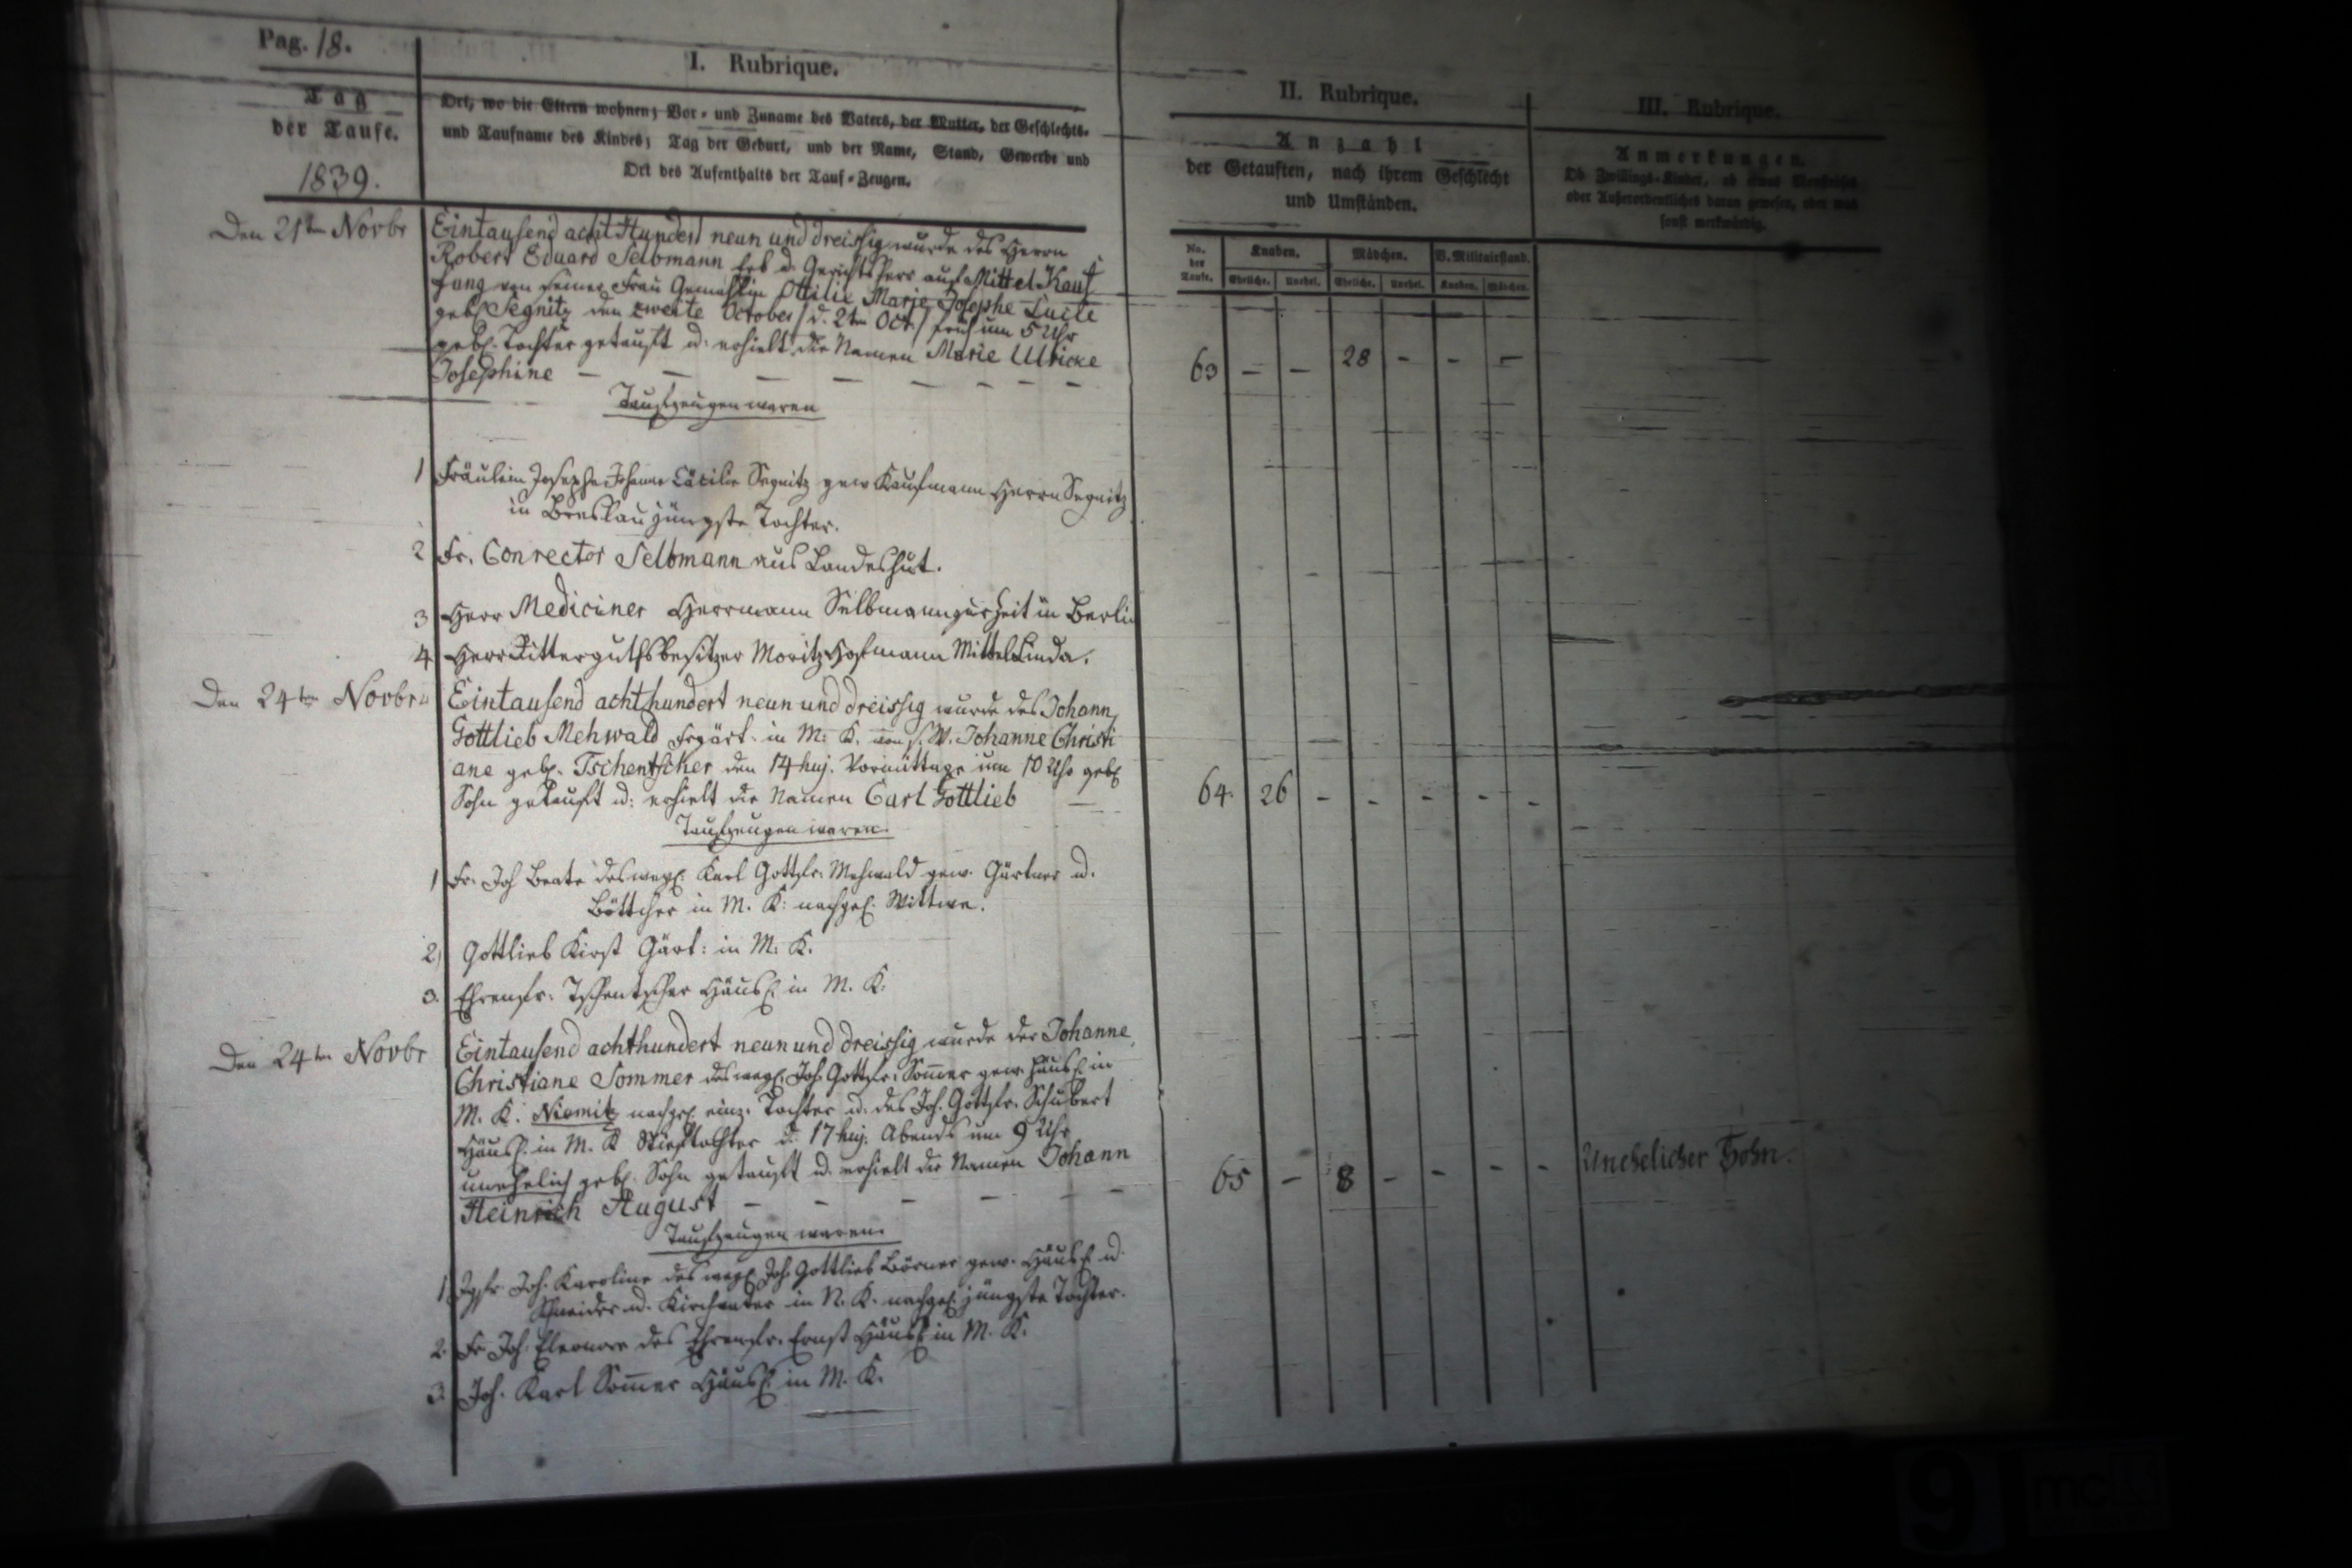 Pag. 18.
I. Rubrique.
II. Rubrique.
III. Rubrique.
Tag
der Taufe.
1839.
Ort, wo die Eltern wohnen; Vor- und Zuname des Vaters, der Mutter, der Geschlechts-
und Taufname des Kindes; Tag der Geburt, und der Name, Stand, Gewerbe und
Ort des Aufenthalts der Tauf-Zeugen.
Anzahl
der Getauften, nach ihrem Geschlecht
und Umständen.
Anmerkungen.
Ob Zwillings-Kinder, ob etwas
oder Außerordentliches daran gewesen, oder was
sonst merkwürdig.
No. der Taufe.
Knaben. Mädchen. B. Militairstand.
Eheliche. Unehel. Eheliche. Unehel. Knaben. Mädchen.
Den 21ten Novbr
Eintausend acht Hundert neun und dreissig wurde des Herrn
Robert Eduard Selbmann Erb u. Gerichts Herr auf Mittel Kauf
fung von seiner Frau Gemahlin Ottilie Marie Josephe Lucie
geb. Segnitz den zweite October / d. 2ten Oct / früh um 5 Uhr
geb. Tochter getauft u: erhielt die Namen Marie Ulricke
Josephine – – – – – – – –
63 – – 28 – – –
Taufzeugen waren
1 Fräulein Josepha Johanna Cäcilie Segnitz gew Kaufmann Herrn Segnitz
in Breslau jüngste Tochter.
2 Fr. Conrector Selbmann aus Landeshut.
3 Herr Mediciner Herrmann Selbmann zur Zeit in Berlin
4 Herr Ritterguthsbesitzer Moritz Hofmann Mittel Linda.
Den 24ten Novbr
Eintausend achthundert neun und dreissig wurde des Johann
Gottlieb Mehwald Frgärt. in M. K. von s. W. Johanne Christi
ane geb. Tschentscher den 14 huj. Vormittags um 10 Uhr geb
Sohn getauft u: erhielt die Namen Carl Gottlieb –
64. 26 – – – – –
Taufzeugen waren.
1 Fr. Joh Beate des weyl. Karl Gottfr. Mehwald gew. Gärtner u.
Böttcher in M. K: nachgel. Wittwe.
2) Gottlieb Kirst Gärt: in M: K.
3. Ehrenfr. Tschentscher Häusl. in M. K.
Den 24ten Novbr
Eintausend achthundert neun und dreissig wurde der Johanne
Christiane Sommer des weyl. Joh. Gottfr. Sommer gew. Häusl. in
M. K. Niemitz nachgel. einz. Tochter u. des Joh. Gottfr. Schubert
Häusl. in M. K Stieftochter d. 17 huj. Abends um 9 Uhr
unehelich geb. Sohn getauft u. erhielt die Namen Johann
Heinrich August – – – – – –
65 – 8 – – – –
Unehelicher Sohn.
Taufzeugen waren.
1. Jgfr. Joh. Karoline des weyl. Joh. Gottlieb Börner gew. Häusl. u.
Schneider u. Kirchvater in N. K. nachgel. jüngste Tochter.
2. Fr Joh. Eleonore des Ehrenfr. Ernst Häusl in M. K.
3. Joh. Karl Sommer Häusl. in M. K.